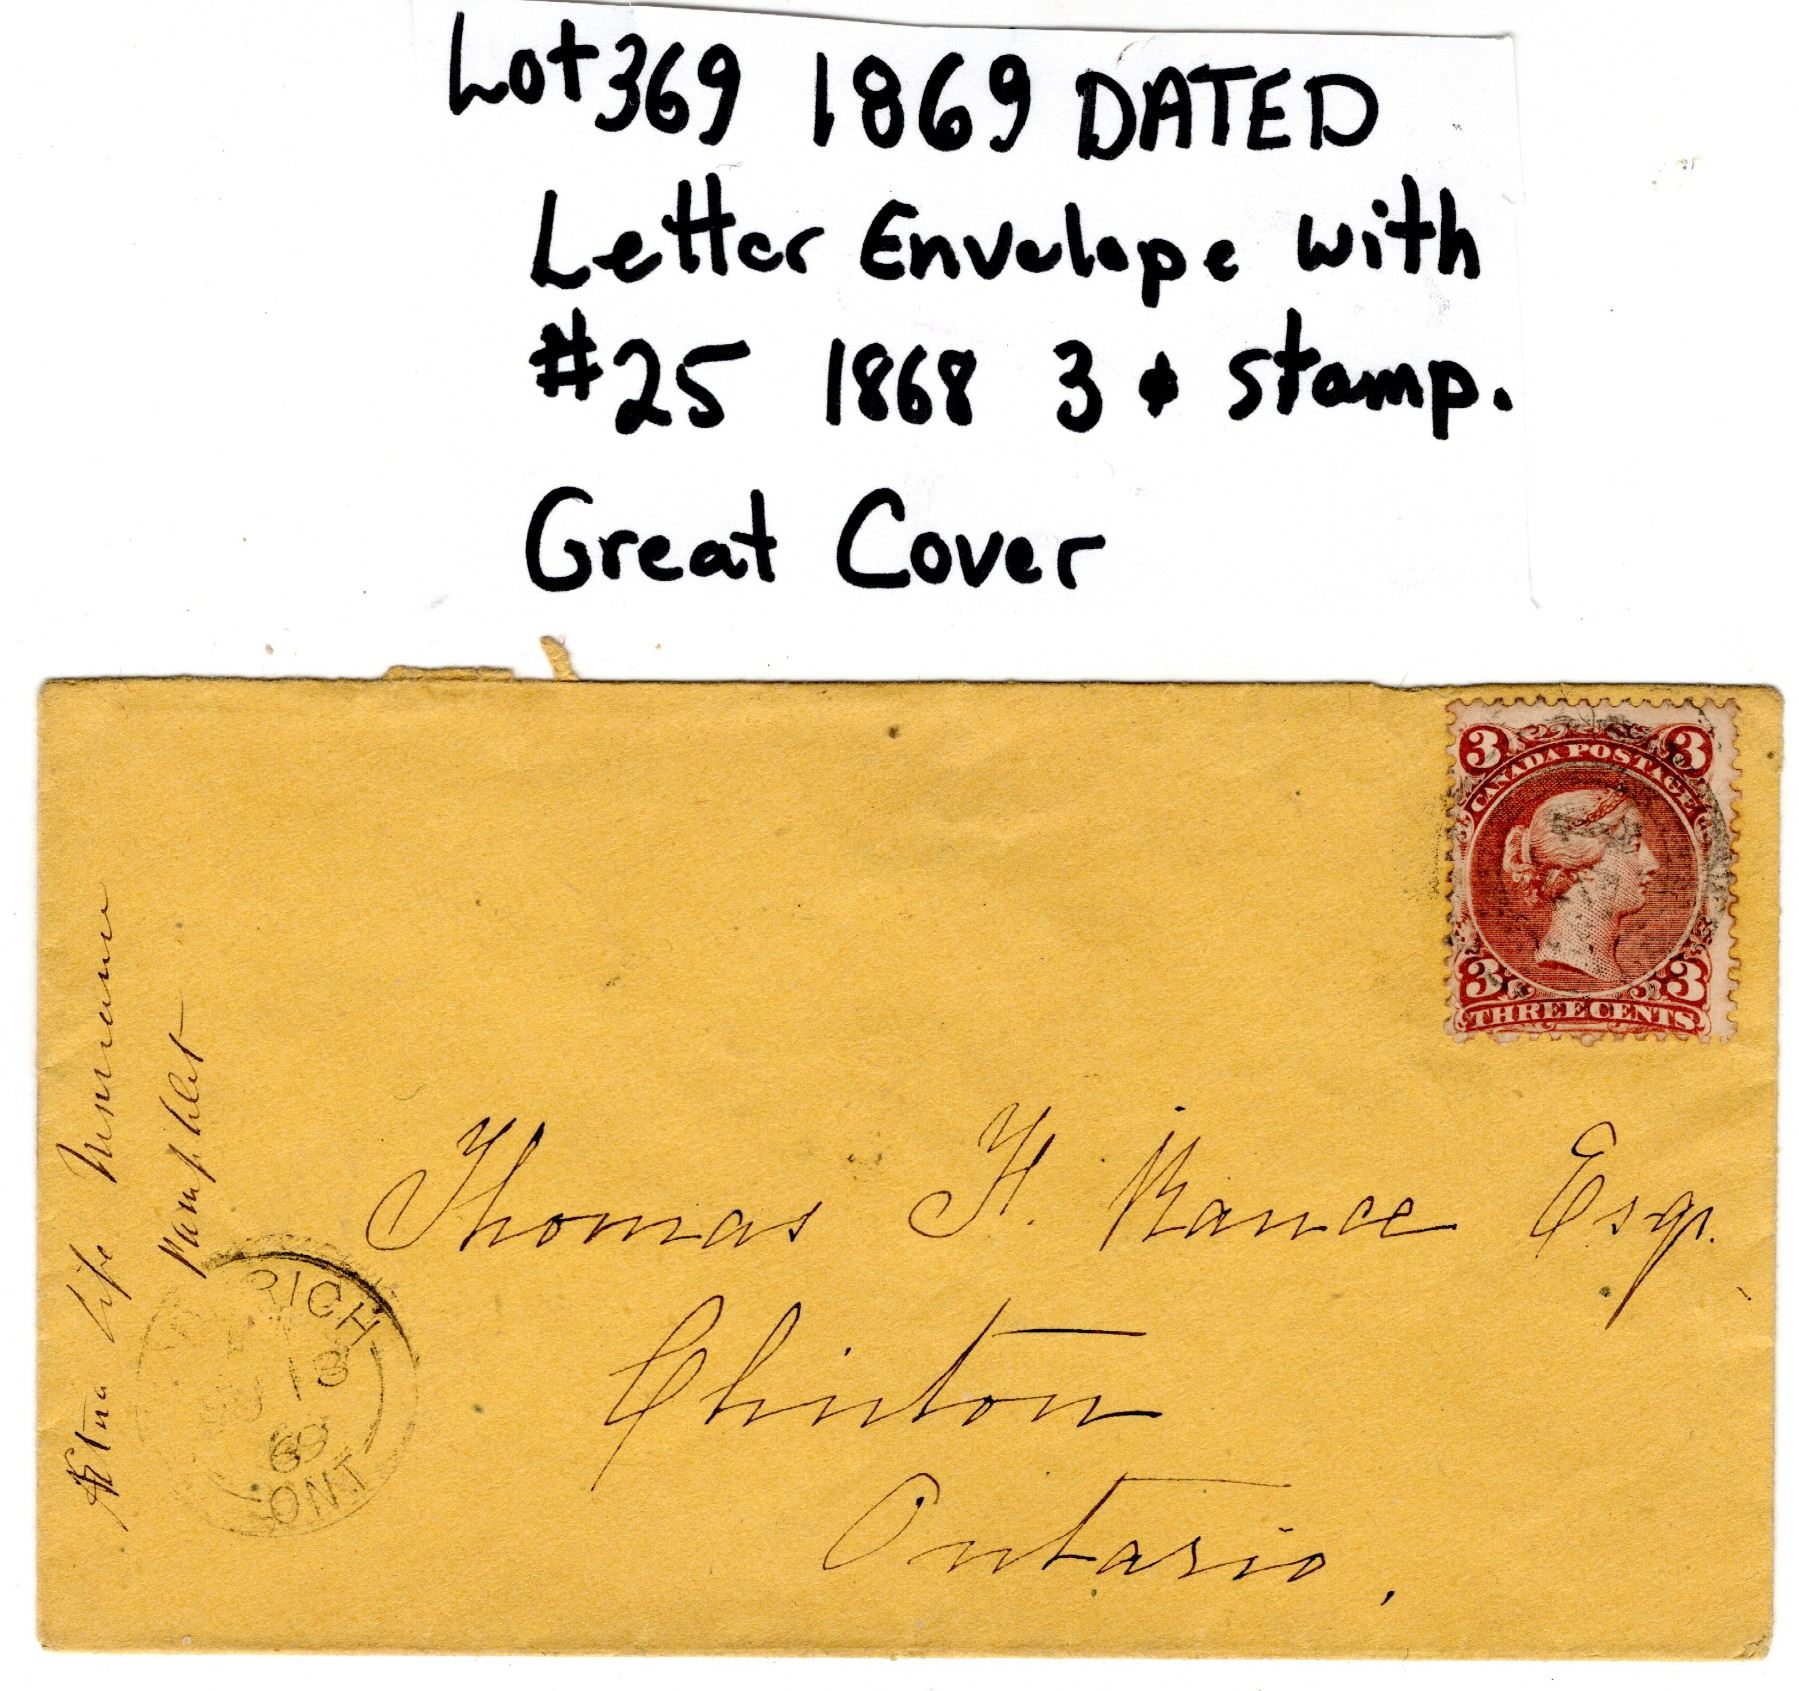 Lot 369 1869 DATED
Letter Envelope with
#25 1868 3¢ stamp.
Great Cover
3 3
CANADA POSTAGE
3 3
THREE CENTS
Ætna Life Insurance
Pamphlet
Thomas H. Rance Esqr.
Clinton
Ontario,
RICH
13
69
ONT